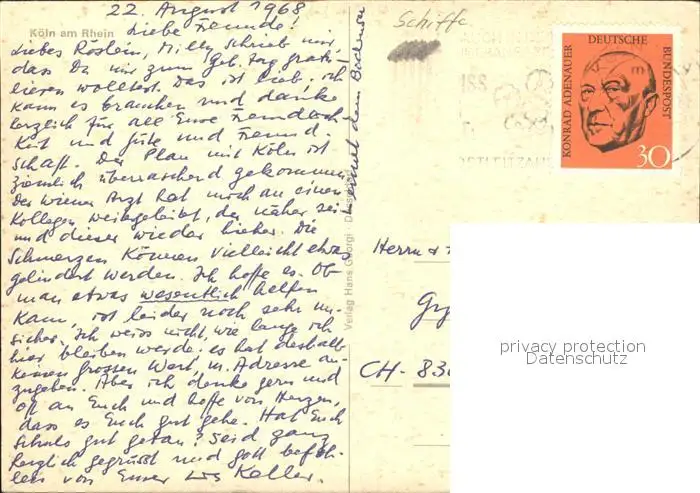 22. August 1968
Köln am Rhein
Liebe Freunde!
Liebes Röslein, Milly schrieb mir,
dass Du mir zum Geb.tag gratu-
lieren wolltest. Das ist lieb. ich
kann es brauchen und danke
herzlich für all Eure Freundlich-
keit und Güte und Freund-
schaft. Der Plan mit Köln ist
ziemlich überraschend gekommen.
Der Wiener Arzt hat mich an einen
Kollegen weitergeleitet, der näher sei
und dieser wieder hieher. Die
Schmerzen können vielleicht etwas
gelindert werden. Ich hoffe es. Ob
man etwas wesentlich helfen
kann, ist leider noch sehr un-
sicher. Ich weiss nicht, wie lange ich
hier bleiben werde. es hat deshalb
keinen grossen Wert, m. Adresse an-
zugeben. Aber ich denke gern und
oft an Euch und hoffe von Herzen,
dass es Euch gut gehe. Hat Euch
Schuls gut getan? Seid ganz
herzlich gegrüsst und Gott befoh-
len von Eurer Keller.
Verlag Hans Georgi · Düsseldorf
Schiffe
DEUTSCHE
BUNDESPOST
KONRAD ADENAUER
30
Herrn &
CH- 830
privacy protection
Datenschutz